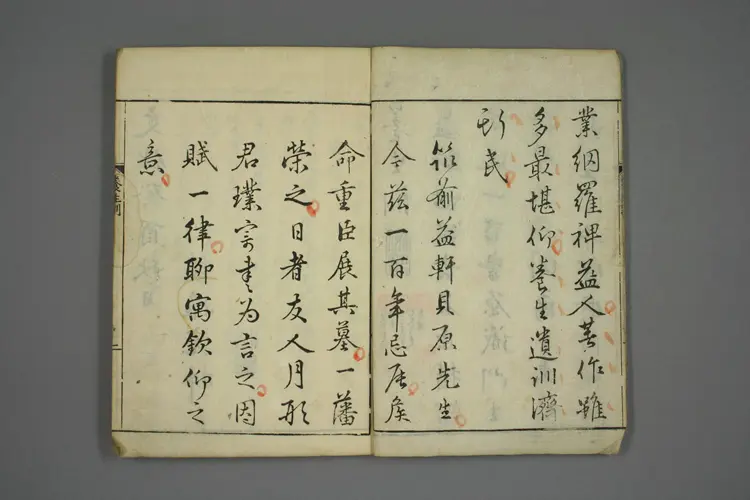 業網羅裨益人著作雖
多最堪仰養生遺訓濟
斯民
筑前益軒貝原先生
今茲一百年忌居侯
命重臣展其墓一藩
榮之日者友人月形
君璞寄書為言之因
賦一律聊寓欽仰之
意